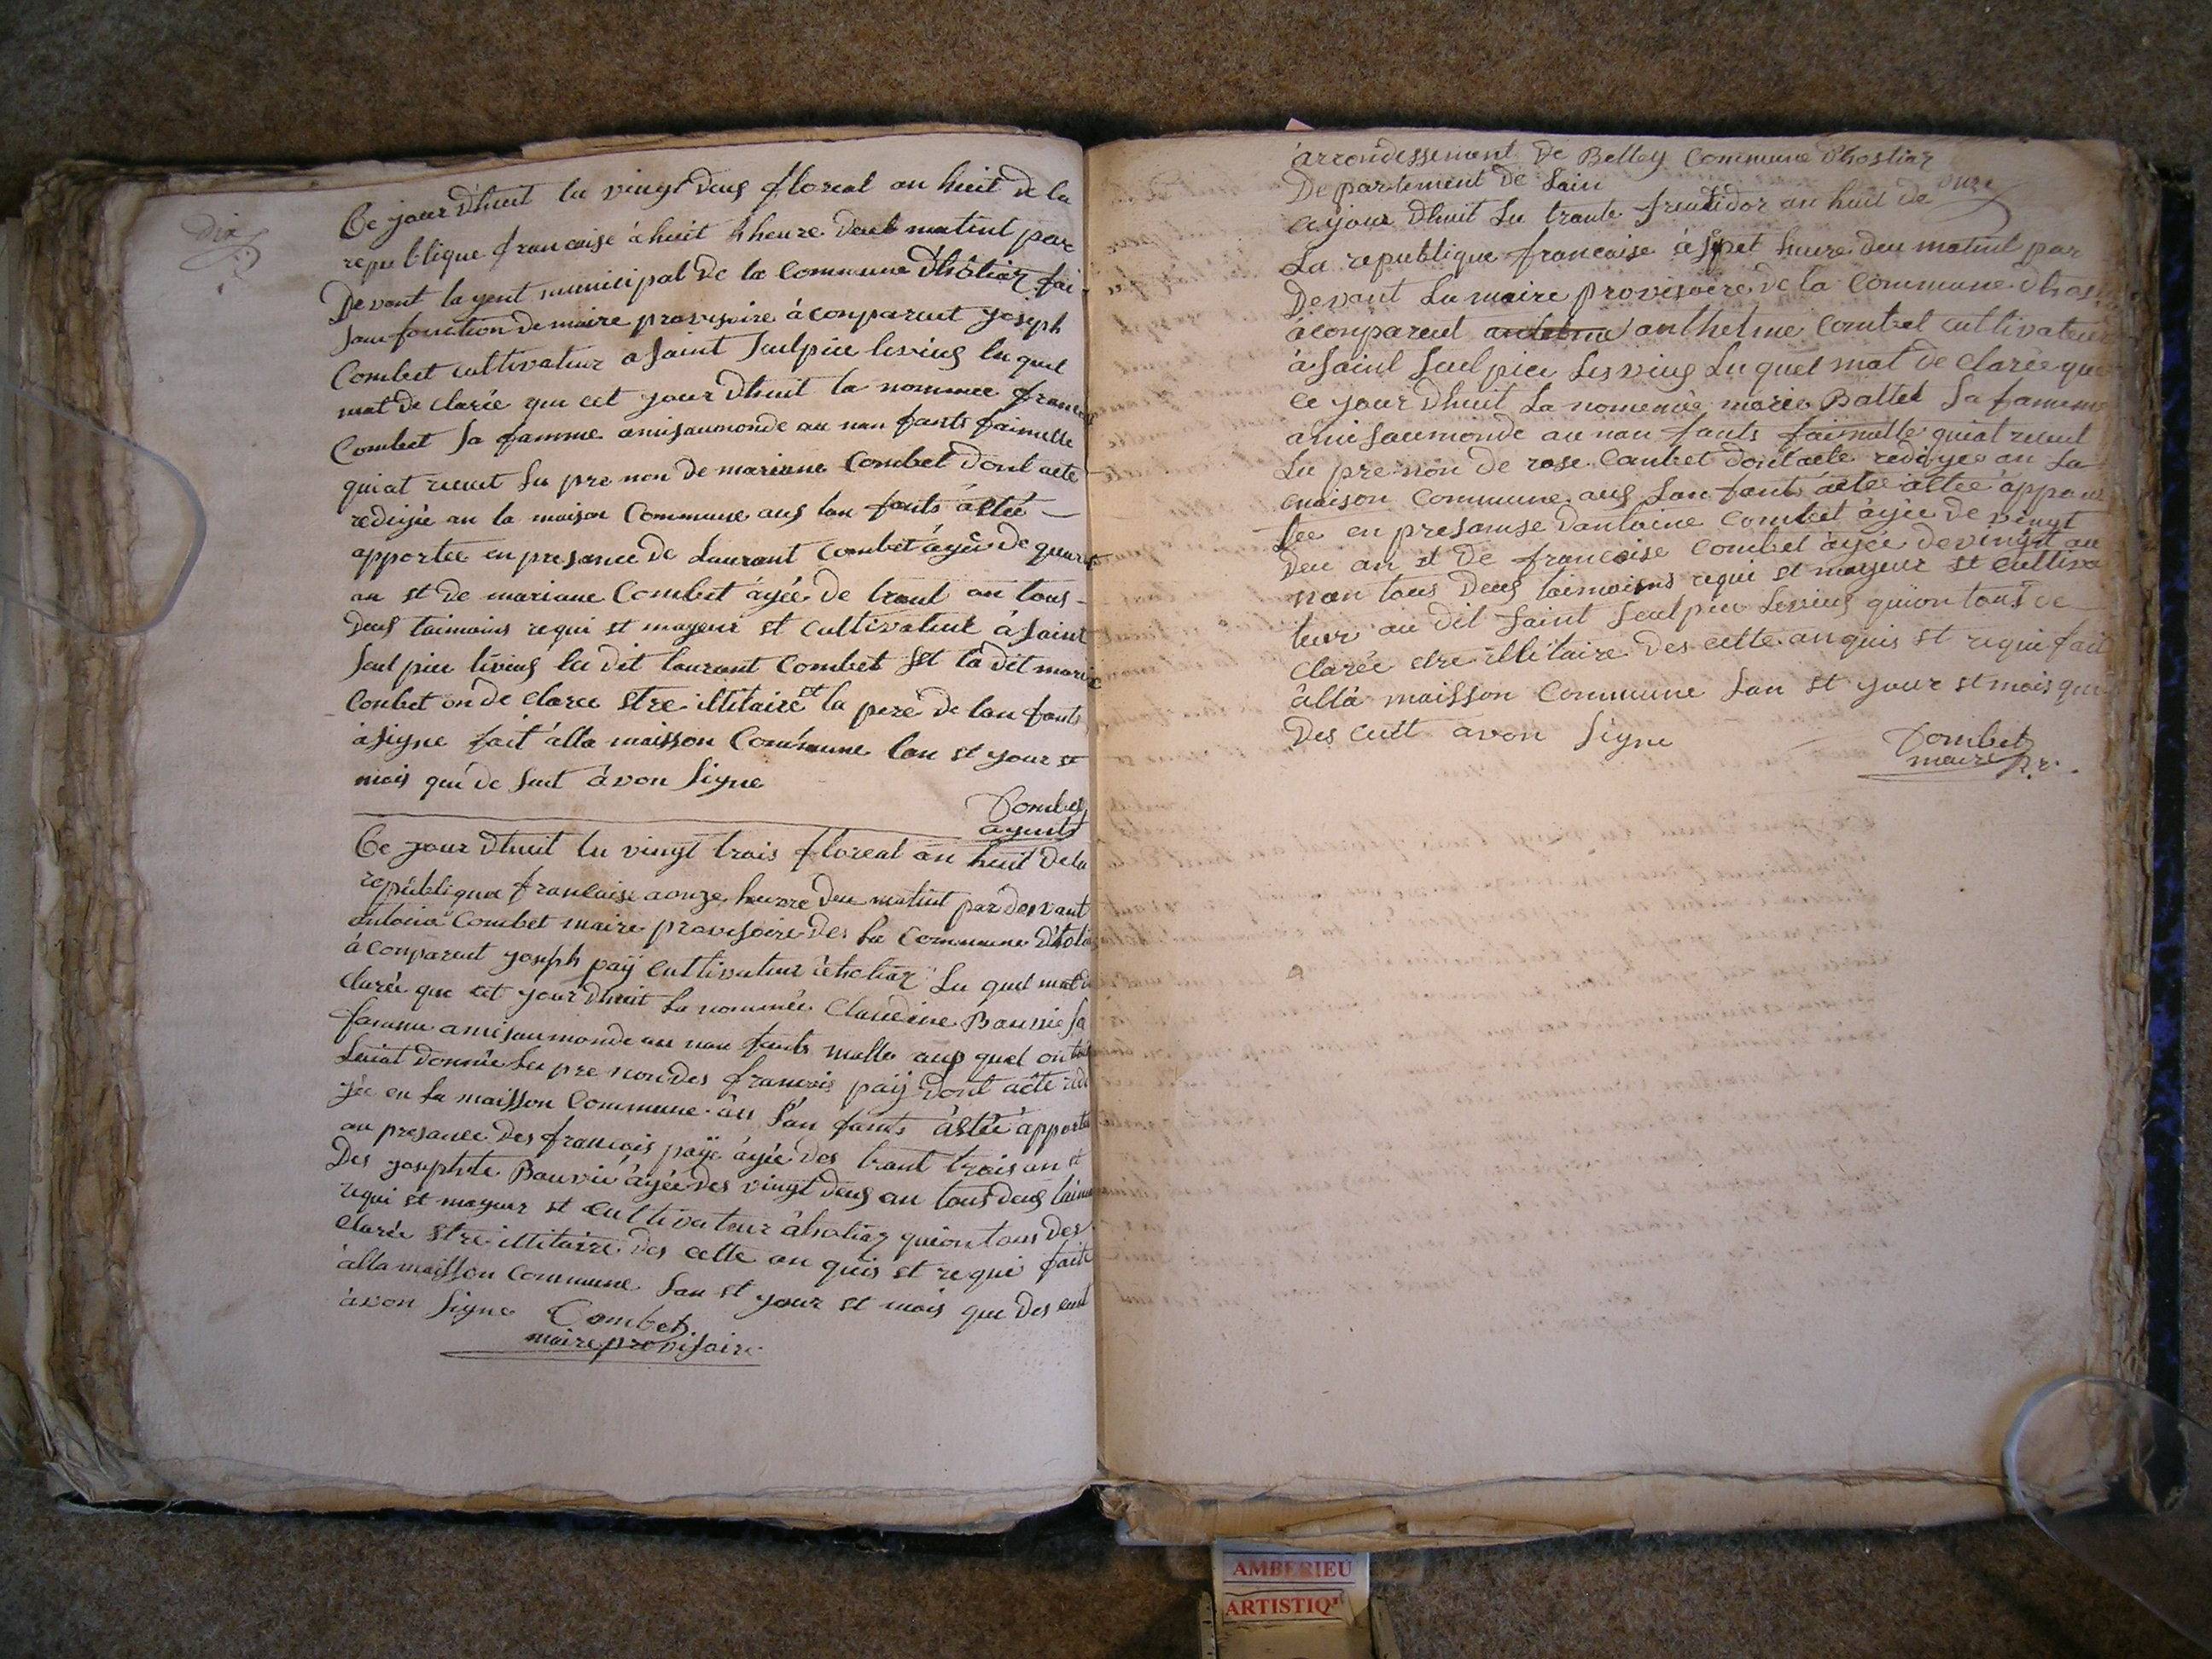 dix
Ce jour dhuit lu vingt deus floreal an huit de la
republique francaise à huit h heure deu matint par
Devant lagent municipal de la Commune d'hôtiaz fai
sans fonction de maire provisoire à conpareut joseph
Combet cultivateur a saint Seulpice levieus lu quel
mat de clarée que cet jour dhuit la nommee
Combet sa famme amisaumonde au nan fants faimelle
quiat recut lu pre non de mariane Combet dont acte
redigée an la maison Commune aus lan fants àêtée
apportée en presance de Laurant Combet âyée de
an st de mariane Combet âyée de trant an tous
deus taimoins requi st mayeur st cultivateur à saint
Seul pice lévieus lu dit laurant Combet st la dit
Conbet on de claree stre illitaire et la pere de lan fants
à signe fait àlla maisson Commune lan st your st
mois que de sut àvon signe
Combet
agent
Ce jour dhuit lu vingt trois floreal an huit de la
republique francaise a onze heurre deu matint par devant
antoine Combet maire provisoire des la Commune
à conpareut joseph paÿ cultivateur à hotiaz lu quel mat de
clarée que cet jour dhuit la nommée Claudine Bauvie sa
famme amisaumonde au nan fants malle aus quel on
luiat donnée lu pre non des francois paÿ dont acte
yée en la maisson Commune àu l'an fants àêtée apportée
an presance des francois paÿe âyée des trant trois an st
Des josephte Bauvie âyée des vingt deus an tous deus
requi st mayeur st cultivateur àhotiaz quion tous des
clarée stre illitaire des cette an quis st requi faite
àlla maisson Commune lan st your st mois que des
àvon signe Combet
maire provisoire
àrrondissement de Belley Commune dhostiaz
Departement de Lain
onze
Ce jour dhuit Lu trante fructidor an huit de
La republique francaise à sept heure deu matint par
Devant Lu maire provisoire de la Commune
àconpareut anthelme Combet cultivateur
à saint Seulpice Lesvieus Lu quel mat de clarée que
ce jour dhuit La nomemée marie Ballet sa famme
amisaumonde au nan fants faimelle quiat recut
Lu prenon de rose Combet dont acte redigee an La
maison Commune aus Lan fants acte àêtée appor
tee en presanse dantoine Combet âyée de vingt
deu an st de francoise Combet âyée de vingt au
nan tous deus taimoins requi st mayeur st cultiva
teur au dit saint Seulpice Levieus quion tous de
clarée stre illitaire des cette an quis st requi fait
àlla maisson Commune Lan st your st mois que
des cutt avon signe
Combet
maire pr.
AMBERIEU
ARTISTIQ